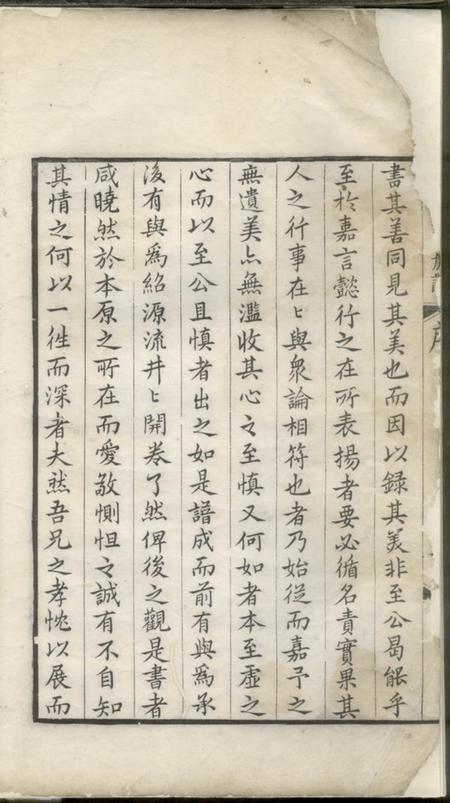 書其善同見其美也而因以錄其美非至公曷能乎
至於嘉言懿行之在所表揚者要必循名責實果其
人之行事在㆑與眾論相符也者乃始從而嘉予之
無遺美亦無濫收其心之至慎又何如者本至虛之
心而以至公且慎者出之如是譜成而前有與為承
後有與為紹源流井㆑開卷了然俾後之觀是書者
咸曉然於本原之所在而愛敬惻怛之誠有不自知
其情之何以一往而深者夫然吾兄之孝忱以展而